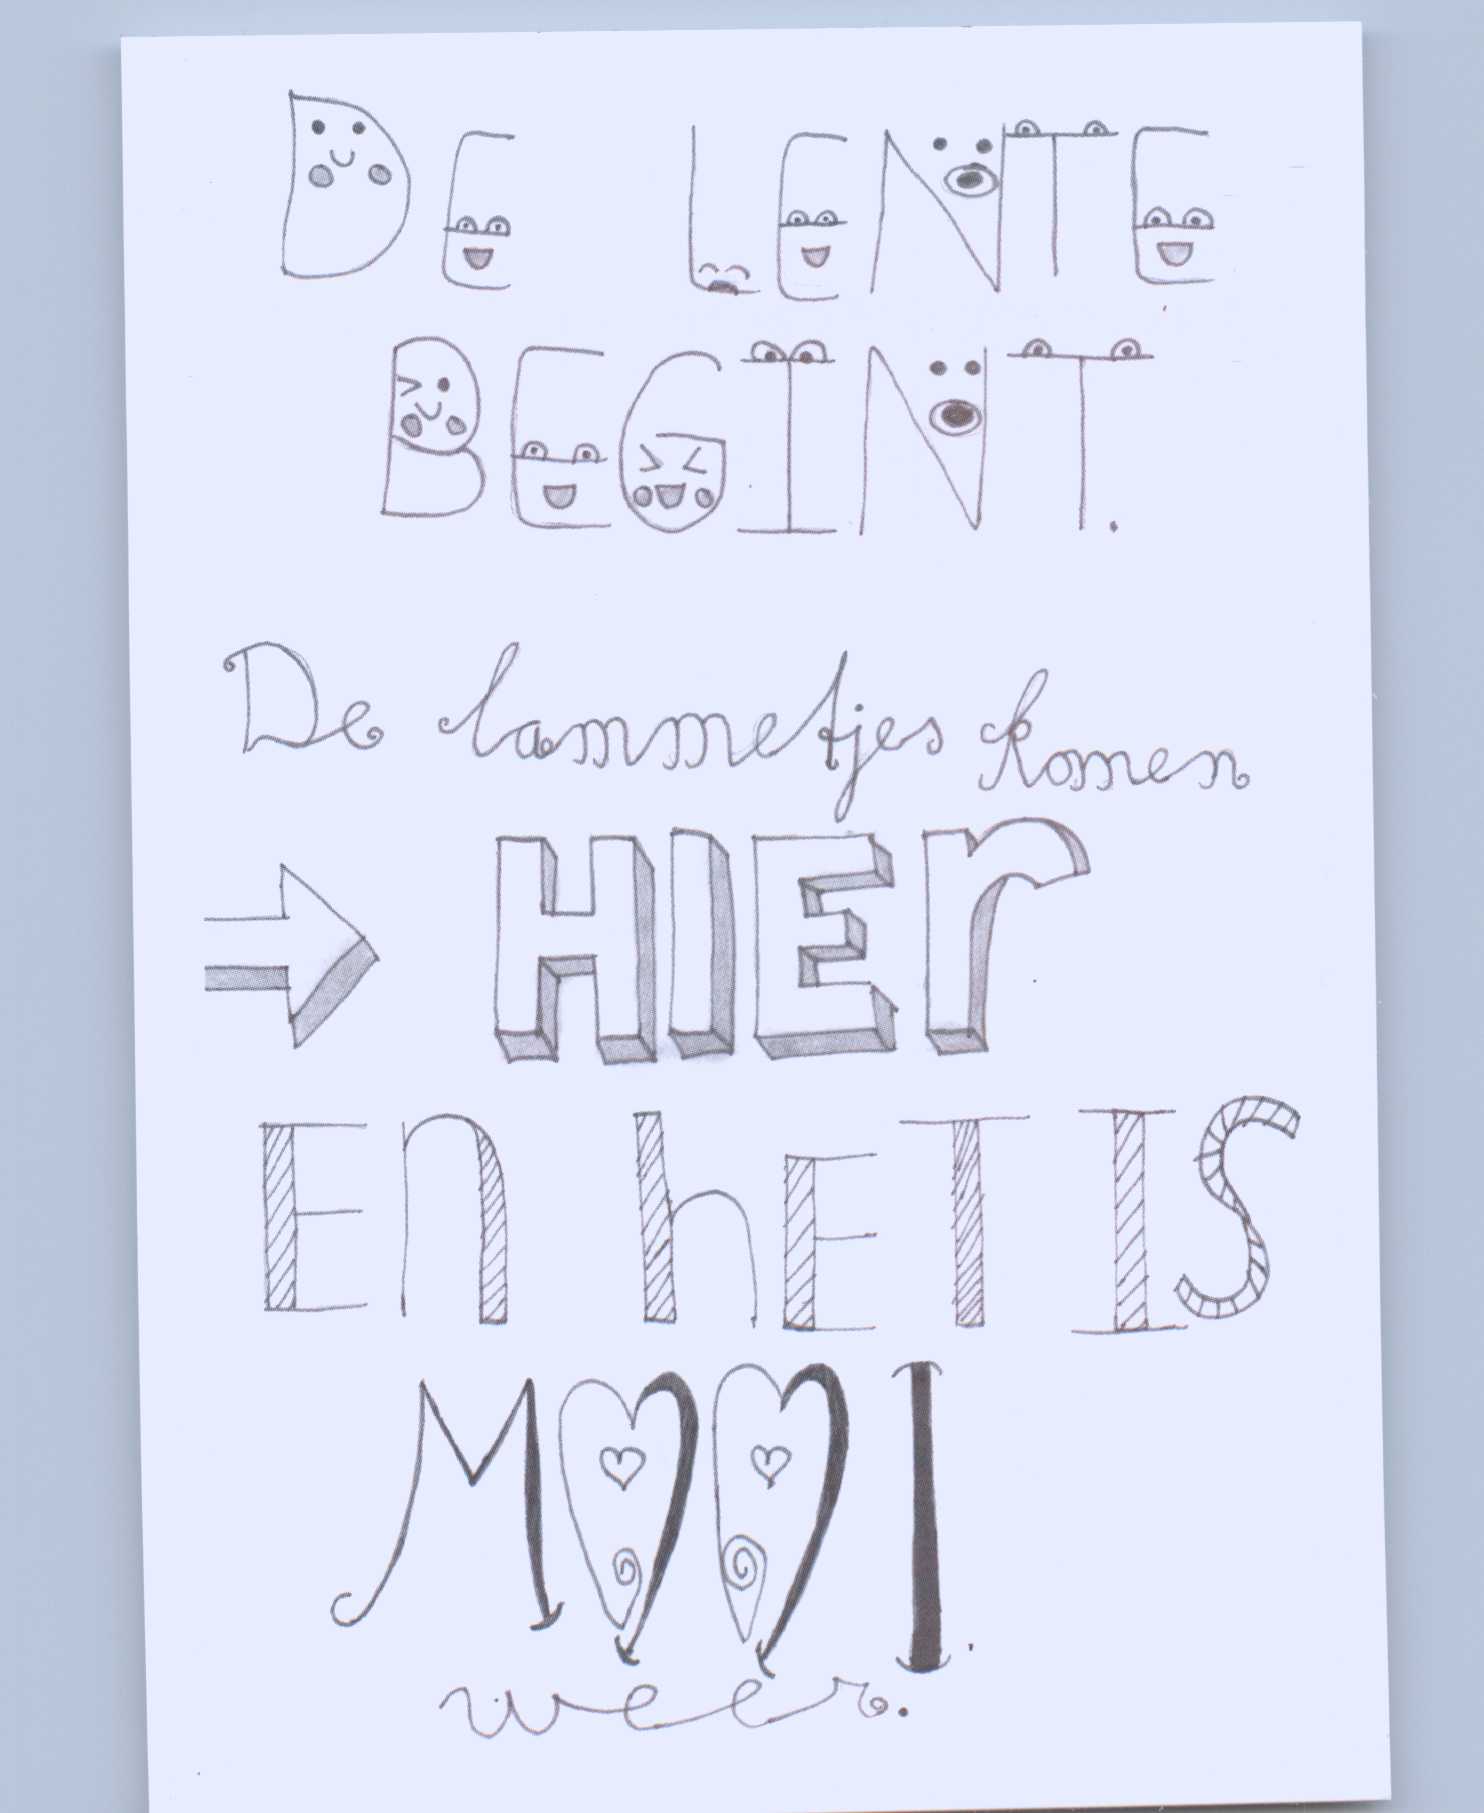 DE LENTE
BEGINT.
De lammetjes komen
HIEr
En hET IS
MOOI.
weer.